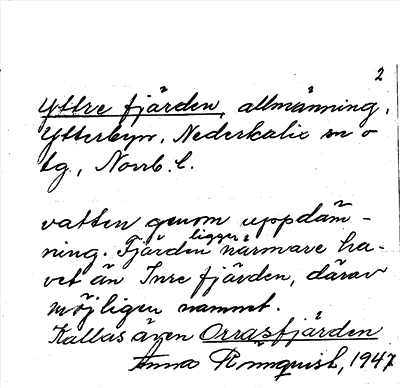 2
Yttre fjärden, allmänning,
Ytterbyn, Nederkalix sn o
tg., Norrb. l.
vatten genom uppdäm-
ning. Fjärden ligger närmare ha-
vet än Inre fjärden, därav
möjligen namnet.
Kallas även Orrasfjärden
Anna Rönnquist, 1947